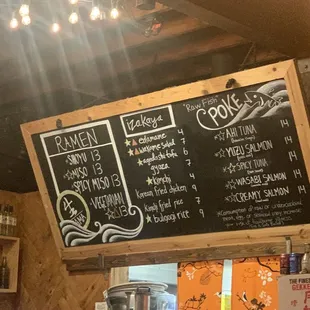 RAMEN
SHOYU 13
MISO 13
SPICY MISO 13
VEGETARIAN 13
izakaya
edamame 4
wakame salad 7
agedashi tofu 7
gyoza 7
kimchi 4
Korean fried chicken 9
Kimchi fried rice 7
bulgogi rice 9
"Raw Fish" POKE
AHI TUNA 14
YUZU SALMON 14
SPICY TUNA 14
WASABI SALMON 14
CREAMY SALMON 14
THE FINEST